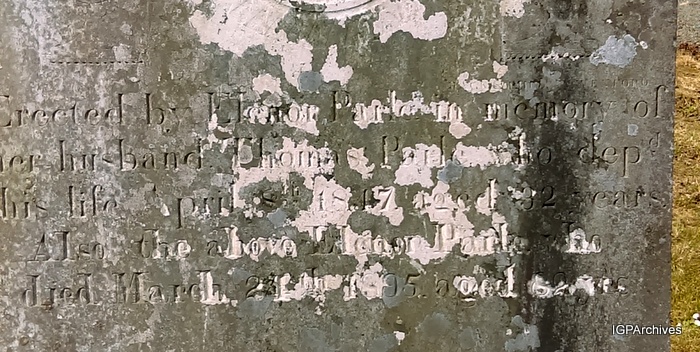 Erected by Elenor Parke in memory of
her husband Thomas Parke who depd
this life April 18 7 aged 32 years
Also the above Elenor Parke who
died March 95 aged 62 yrs
IGPArchives